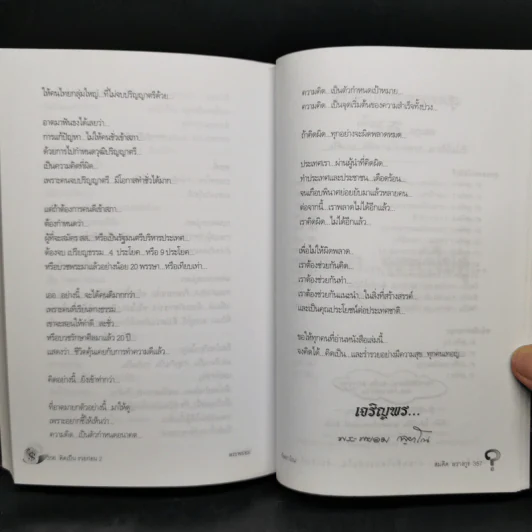 ให้คนไทยกลุ่มใหญ่...ที่ไม่จบปริญญาตรีด้วย...
อาตมาฟันธงได้เลยว่า...
การแก้ปัญหา...ไม่ให้คนชั่วเข้าสภา...
ด้วยการไปกำหนดวุฒิปริญญาตรี...
เป็นความคิดที่ผิด...
เพราะคนจบปริญญาตรี...มีโอกาสทำชั่วได้มาก...
แต่ถ้าต้องการคนดีเข้าสภา...
ต้องกำหนดว่า...
ผู้ที่จะสมัคร สส. ...หรือเป็นรัฐมนตรีบริหารประเทศ...
ต้องจบ เปรียญธรรม...4 ประโยค...หรือ 9 ประโยค...
หรือบวชพระมาแล้วอย่างน้อย 20 พรรษา...หรือเทียบเท่า...
เออ...อย่างนี้...จะได้คนดีมากกว่า...
เพราะคนที่เรียนทางธรรม...
เขาจะสอนให้ทำดี...ละชั่ว...
หรือบวชรักษาศีลมาแล้ว 20 ปี...
แสดงว่า...ชีวิตคุ้นเคยกับการทำความดีแล้ว...
คิดอย่างนี้...ยังเข้าท่ากว่า...
ที่อาตมายกตัวอย่างนี้...มาให้ดู...
เพราะอยากชี้ให้เห็นว่า...
ความคิด...เป็นตัวกำหนดอนาคต...
ความคิด...เป็นตัวกำหนดเป้าหมาย...
ความคิด...เป็นจุดเริ่มต้นของความสำเร็จทั้งปวง...
ถ้าคิดผิด...ทุกอย่างจะผิดพลาดหมด...
ประเทศเรา...ผ่านผู้นำที่คิดผิด...
ทำประเทศและประชาชน...เดือดร้อน...
จนเกือบพินาศย่อยยับมาแล้วหลายคน...
ต่อจากนี้...เราพลาดไม่ได้อีกแล้ว...
เราคิดผิด...ไม่ได้อีกแล้ว...
เพื่อไม่ให้ผิดพลาด...
เราต้องช่วยกันคิด...
เราต้องช่วยกันทำ...
เราต้องช่วยกันแนะนำ...ในสิ่งที่สร้างสรรค์...
และเป็นคุณประโยชน์ต่อประเทศชาติ...
ขอให้ทุกคนที่อ่านหนังสือเล่มนี้...
จงคิดได้...คิดเป็น...และร่ำรวยอย่างมีความสุข...ทุกคนเทอญ...
เจริญพร...
พระพยอม